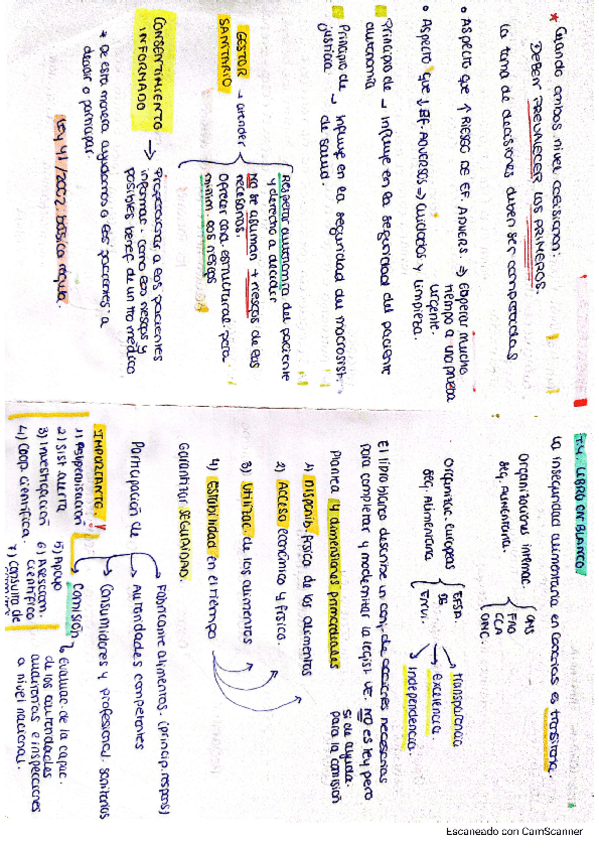 * Cuando ambos nivel coexisiona:
DEBEN PREVALECER LOS PRIMEROS.
la toma de decisiones deben ser compartidas
• Aspecto que ↑ RIESGO DE EF. ADVERS. ⇒ Esperar mucho
tiempo a una prueba
urgente.
• Aspecto que ↓ EF. ADVERSOS ⇒ Cuidados y limpieza.
Principio de → influye en la seguridad del paciente
autonomía
Principio de → influye en la seguridad del macrosist.
justicia de salud.
GESTOR
SANITARIO → atender
Respetar autonomía del paciente
y derecho a decidir
No se asuman + riesgos de los
necesarios.
Ofrecer una estructura para
minim los riesgos
CONSENTIMIENTO
INFORMADO → Proporcionar a los pacientes
informac. como los riesgos y
posibles benef de un tto médico
* De esta manera ayudamos a los pacientes a
decidir o participar
Ley 41/2002: básica regula.
T.4. LIBRO EN BLANCO
la inseguridad alimentaria en Canarias es transitoria.
Organizaciones internac.
seg. Alimentaria.
OMS
FAO
CCA
OMC.
Organizac. europeas
seg. Alimentaria
EFSA.
transparencia
Excelencia.
Independencia.
El libro blanco describe un conj. de acciones necesarias
para completar y modernizar la legisl. UE. NO es ley pero
si de ayuda.
para la comisión
Plantea 4 dimensiones primordiales
1) Disponib. física de los alimentos
2) Acceso económico y física.
3) Utilizac. de los alimentos
4) Estabilidad en el tiempo
Garantizar SEGURIDAD.
Participación de
Fabricante alimentos. (princip. respons)
Autoridades competentes
Consumidores y profesional. sanitarios
Comisión
Evaluac. de la capac.
de las autoridades
auditorias e inspecciones
a nivel nacional.
IMPORTANTE. !
1) Responsabilización
2) Sist alerta
3) Investigación
4) Coop. científica.
5) Apoyo
científico
6) Asesoram
7) Consumo de
Escaneado con CamScanner